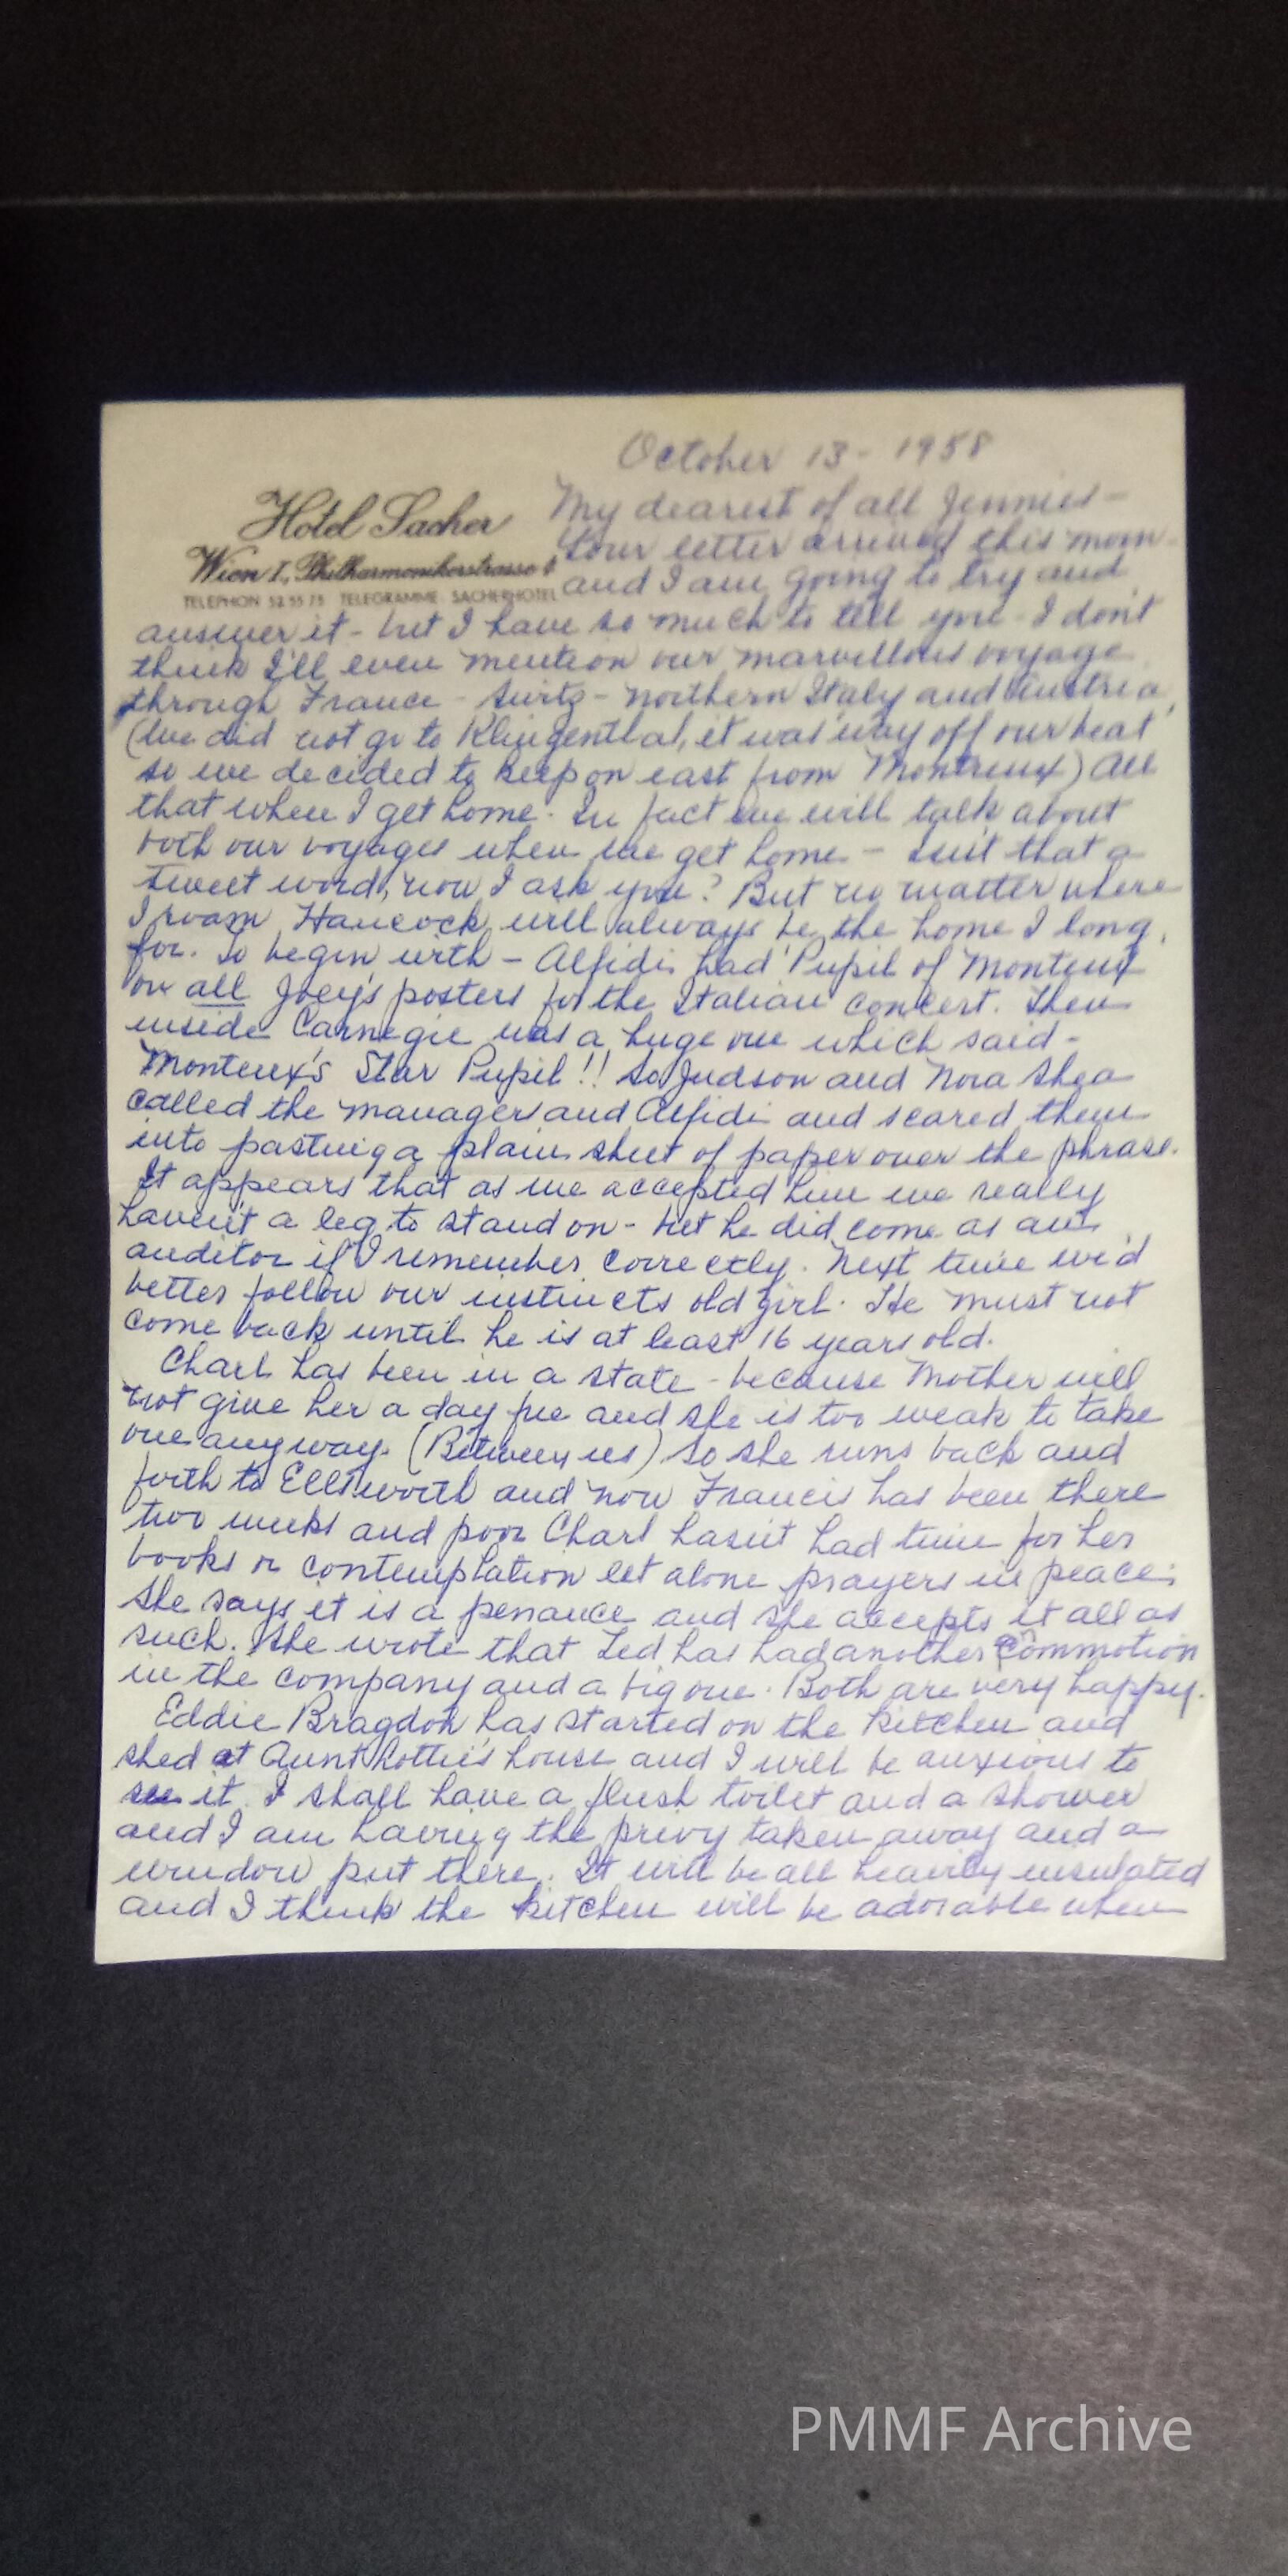 October 13 - 1958
Hotel Sacher
Wien I., Philharmonikerstrasse 4
TELEPHON 52 55 75 TELEGRAMME: SACHERHOTEL
My dearest of all Jennies -
Your letter arrived this morn -
and I am going to try and
answer it - but I have so much to tell you - I don't
think I'll even mention our marvellous voyage
through France - Switz - northern Italy and Austria,
(We did not go to Klingenthal, it was way off our beat
so we decided to keep on east from Montreux) All
that when I get home. In fact we will talk about
both our voyages when we get home - isn't that a
sweet word, now I ask you? But no matter where
I roam Hancock will always be the home I long
for. To begin with - Alfidi had Pupil of Monteux
on all Joey's posters for the Italian concert. Then
inside Carnegie was a huge one which said -
Monteux's Star Pupil!! So Judson and Nora Shea
called the manager and Alfidi and scared them
into pasting a plain sheet of paper over the phrase.
It appears that as we accepted him we really
haven't a leg to stand on - but he did come as an
auditor if I remember correctly. Next time we'd
better follow our instincts old girl. He must not
come back until he is at least 16 years old.
Charl has been in a state - because Mother will
not give her a day free and she is too weak to take
one anyway. (Between us) So she runs back and
forth to Ellsworth and now Francis has been there
two weeks and poor Charl hasn't had time for her
books or contemplation let alone prayers in peace;
She says it is a penance and she accepts it all as
such. She wrote that Ted has had another commotion
in the company and a big one. Both are very happy.
Eddie Bragdon has started on the kitchen and
shed at Aunt Lottie's house and I will be anxious to
see it. I shall have a flush toilet and a shower
and I am having the privy taken away and a
window put there. It will be all heavily insulated
and I think the kitchen will be adorable when
PMMF Archive